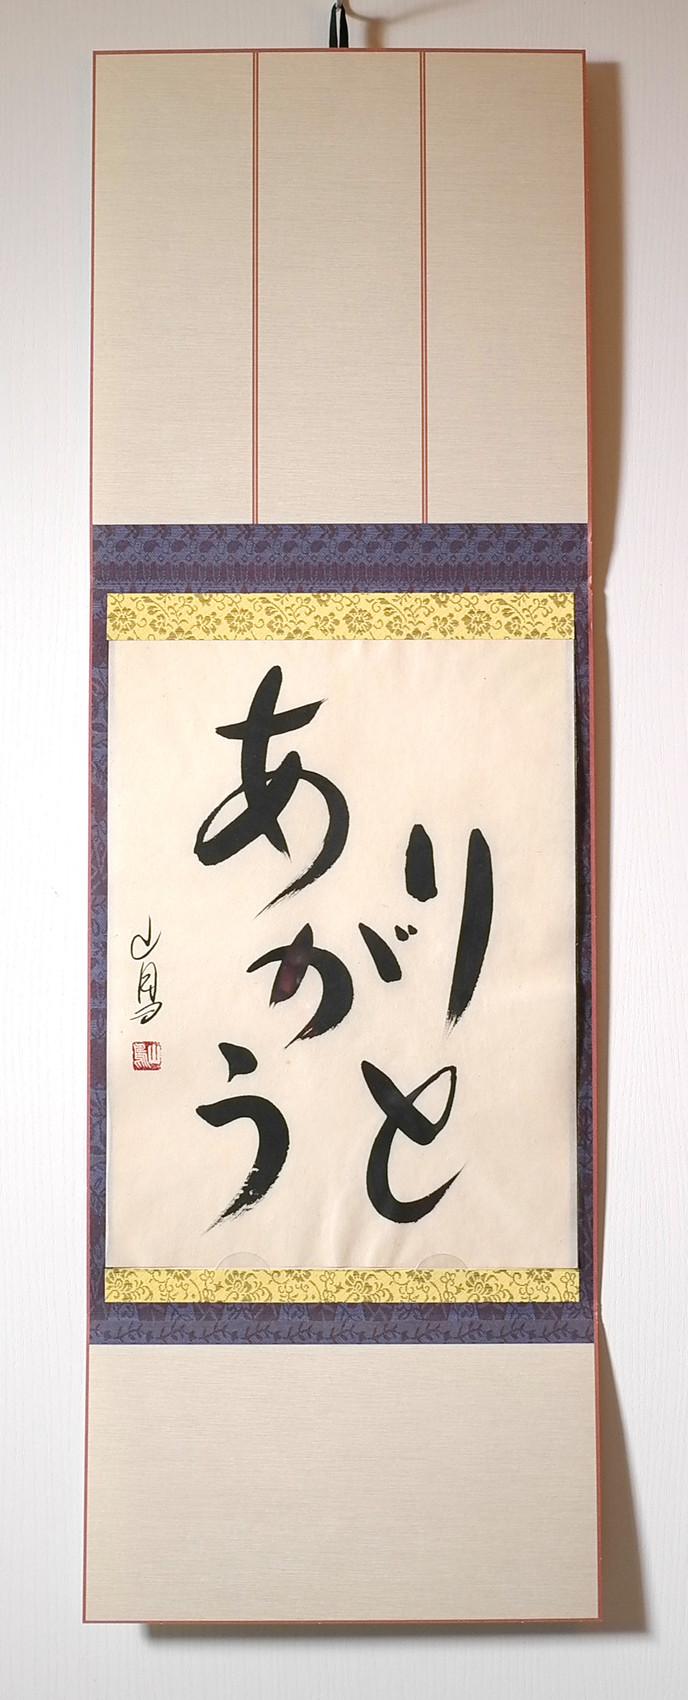 ありがとう
山鳥